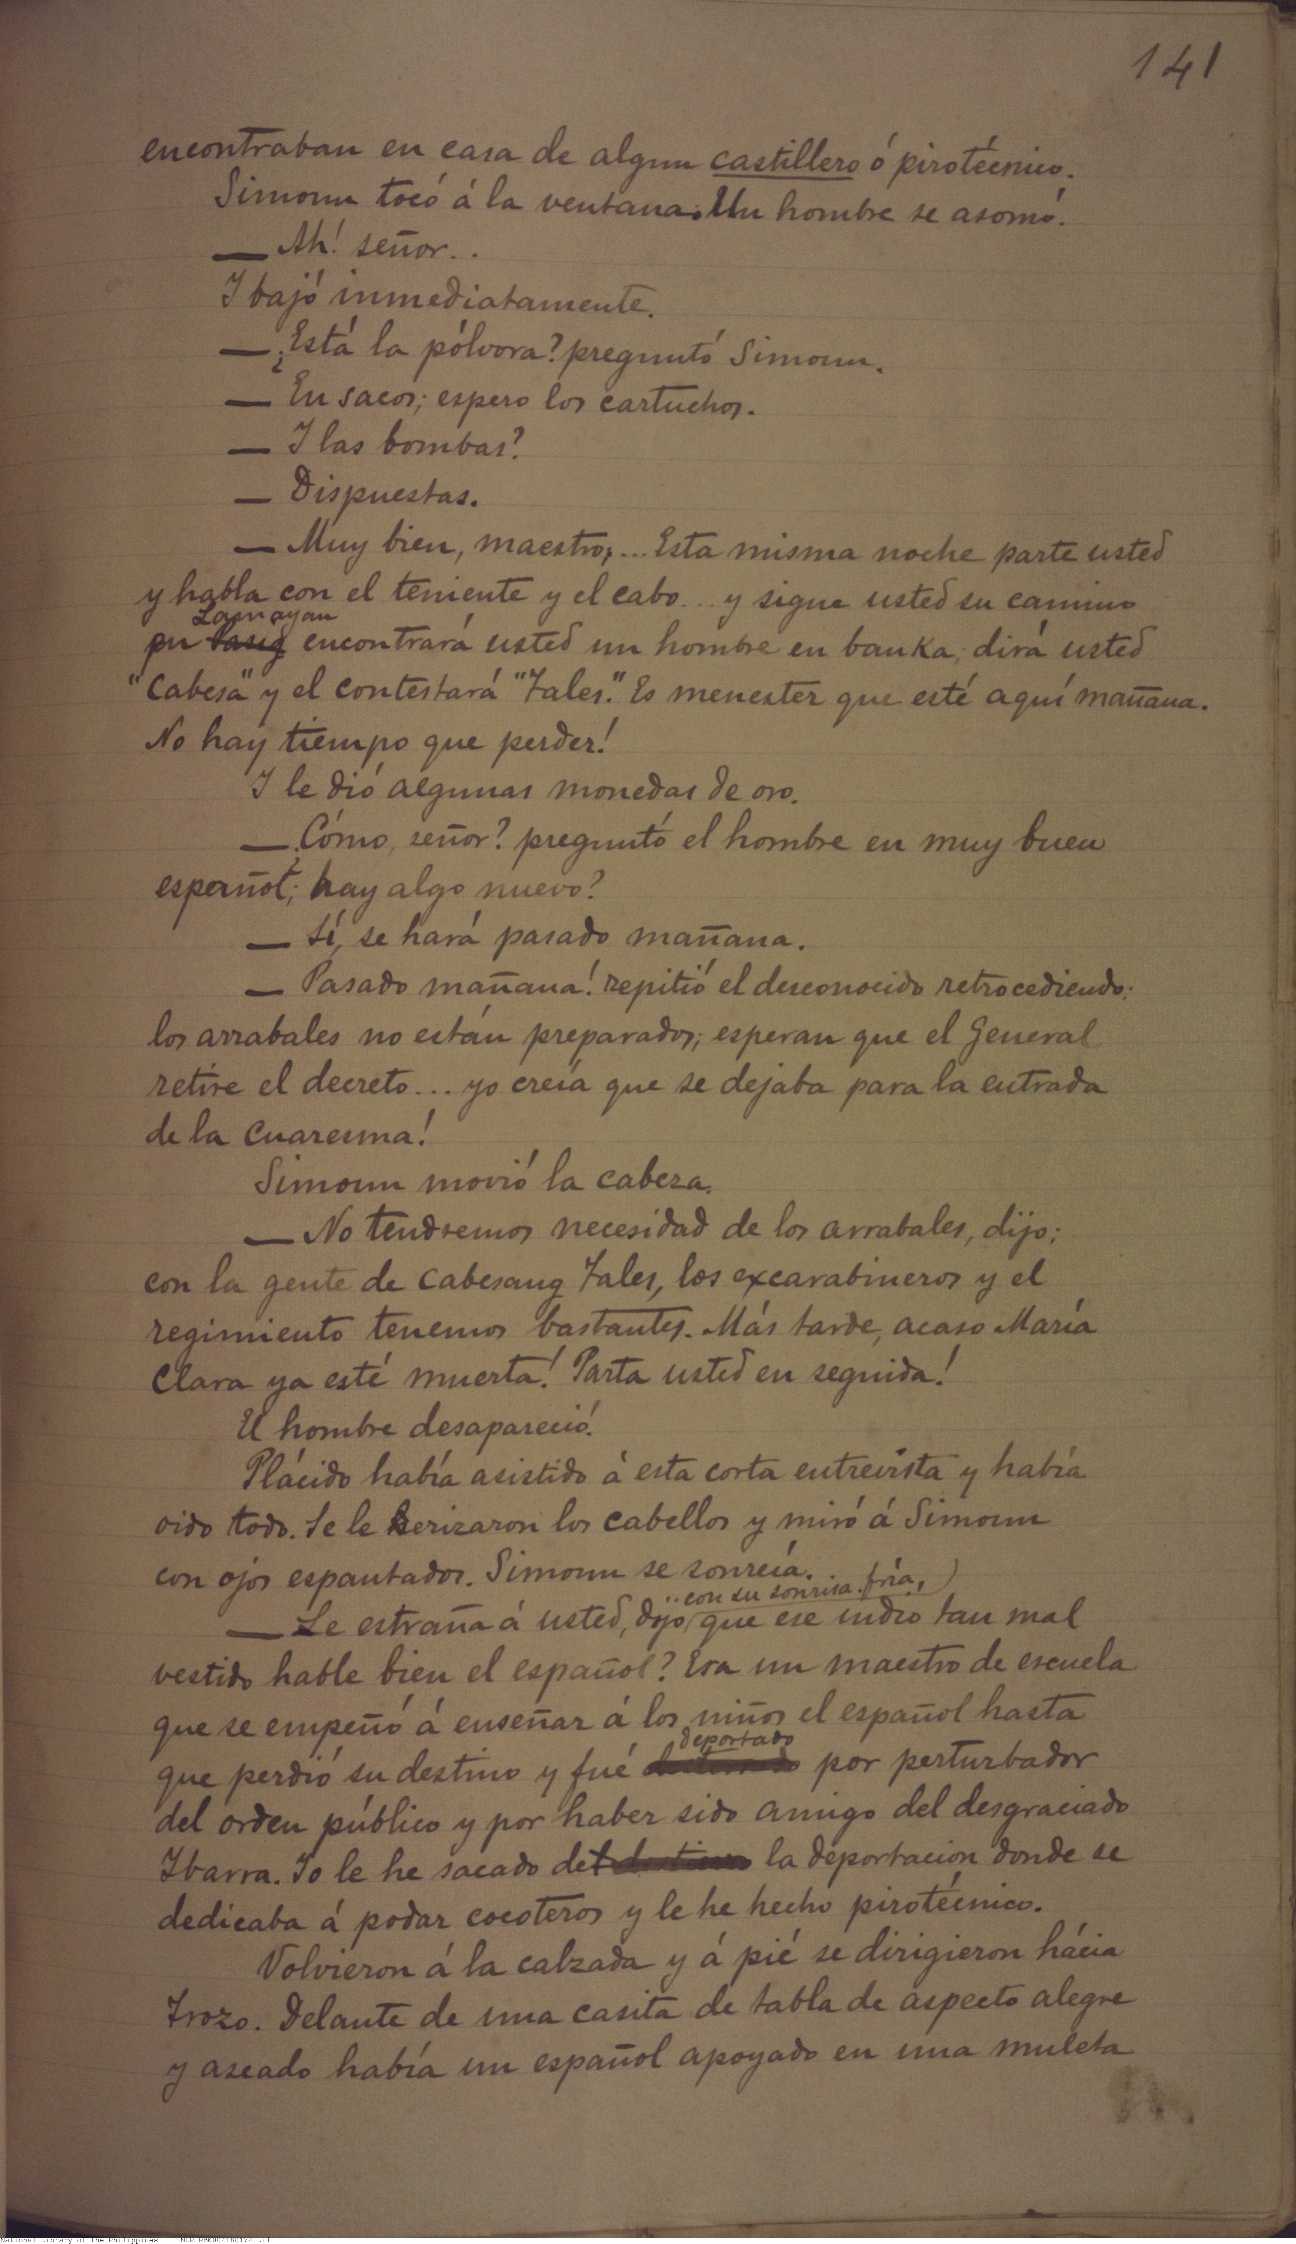 141
encontraban en casa de algun castillero ó pirotécnico.
Simoun tocó á la ventana. Un hombre se asomó.
— Ah! señor..
I bajó inmediatamente.
— ¿Está la pólvora? preguntó Simoun.
— En sacos; espero los cartuchos.
— I las bombas?
— Dispuestas.
— Muy bien, maestro,... Esta misma noche parte usted
y habla con el teniente y el cabo... y sigue usted su camino
Lamayan
en Pasig encontrará usted un hombre en banka; dirá usted
"Cabesa" y el contestará "Tales." Es menester que esté aquí mañana.
No hay tiempo que perder!
I le dió algunas monedas de oro.
— ¿Cómo, señor? preguntó el hombre en muy buen
español; hay algo nuevo?
— Sí, se hará pasado mañana.
— Pasado mañana! repitió el desconocido retrocediendo;
los arrabales no están preparados; esperan que el General
retire el decreto... yo creía que se dejaba para la entrada
de la Cuaresma!
Simoun movió la cabeza.
— No tendremos necesidad de los arrabales, dijo;
con la gente de Cabesang Tales, los excarabineros y el
regimiento tenemos bastantes. Más tarde, acaso María
Clara ya esté muerta! Parta usted en seguida!
El hombre desapareció.
Plácido había asistido á esta corta entrevista y había
oido todo. Se le erizaron los cabellos y miró á Simoun
con ojos espantados. Simoun se sonreía.
con su sonrisa fría,
— Le estraña á usted, dijo que ese indio tan mal
vestido hable bien el español? Era un maestro de escuela
que se empeñó á enseñar á los niños el español hasta
deportado
que perdió su destino y fué por perturbador
del orden público y por haber sido amigo del desgraciado
Ibarra. Io le he sacado de la deportacion donde se
dedicaba á podar cocoteros y le he hecho pirotécnico.
Volvieron á la calzada y á pié se dirigieron hácia
Trozo. Delante de una casita de tabla de aspecto alegre
y aseado había un español apoyado en una muleta